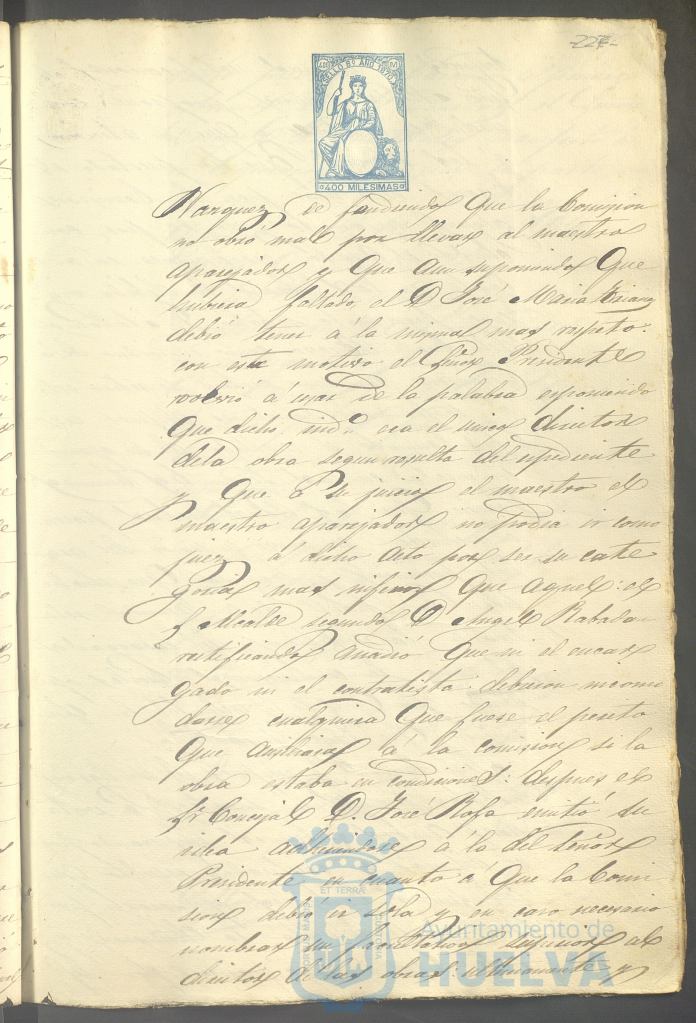 227
SELLO 8º AÑO 1870
400 MILESIMAS
Vazquez defendiendo que la Comision
no obró mal por llevar al maestro
aparejador y que aun suponiendo que
hubiera faltado el D José Maria
debió tener á la misma mas respeto:
con este motivo el Señor Presidente
volvió á usar de la palabra esponiendo
que dicho ind.º era el unico director
dela obra segun resulta del espediente
y que á su juicio el maestro el
maestro aparejador no podia ir como
juez á dicho acto por ser su cate
goria mas inferior que aquel: el
Sr Alcalde segundo D Angel Rabadan
rectificando añadió que ni el encar
gado ni el contratista debieron incomo
darse cualquiera que fuese el perito
que auxiliara á la comision si la
obra estaba en condiciones: despues el
Sr Concejal D. José Rofa emitió su
idea adheriendose á la del Señor
Presidente en cuanto á que la Comi
sion debió ir sola y en caso necesario
nombrar un facultativo superior al
director de las obras: ultimamente y
PORTUS MARIS ET TERRÆ CUSTODIA
Ayuntamiento de
HUELVA